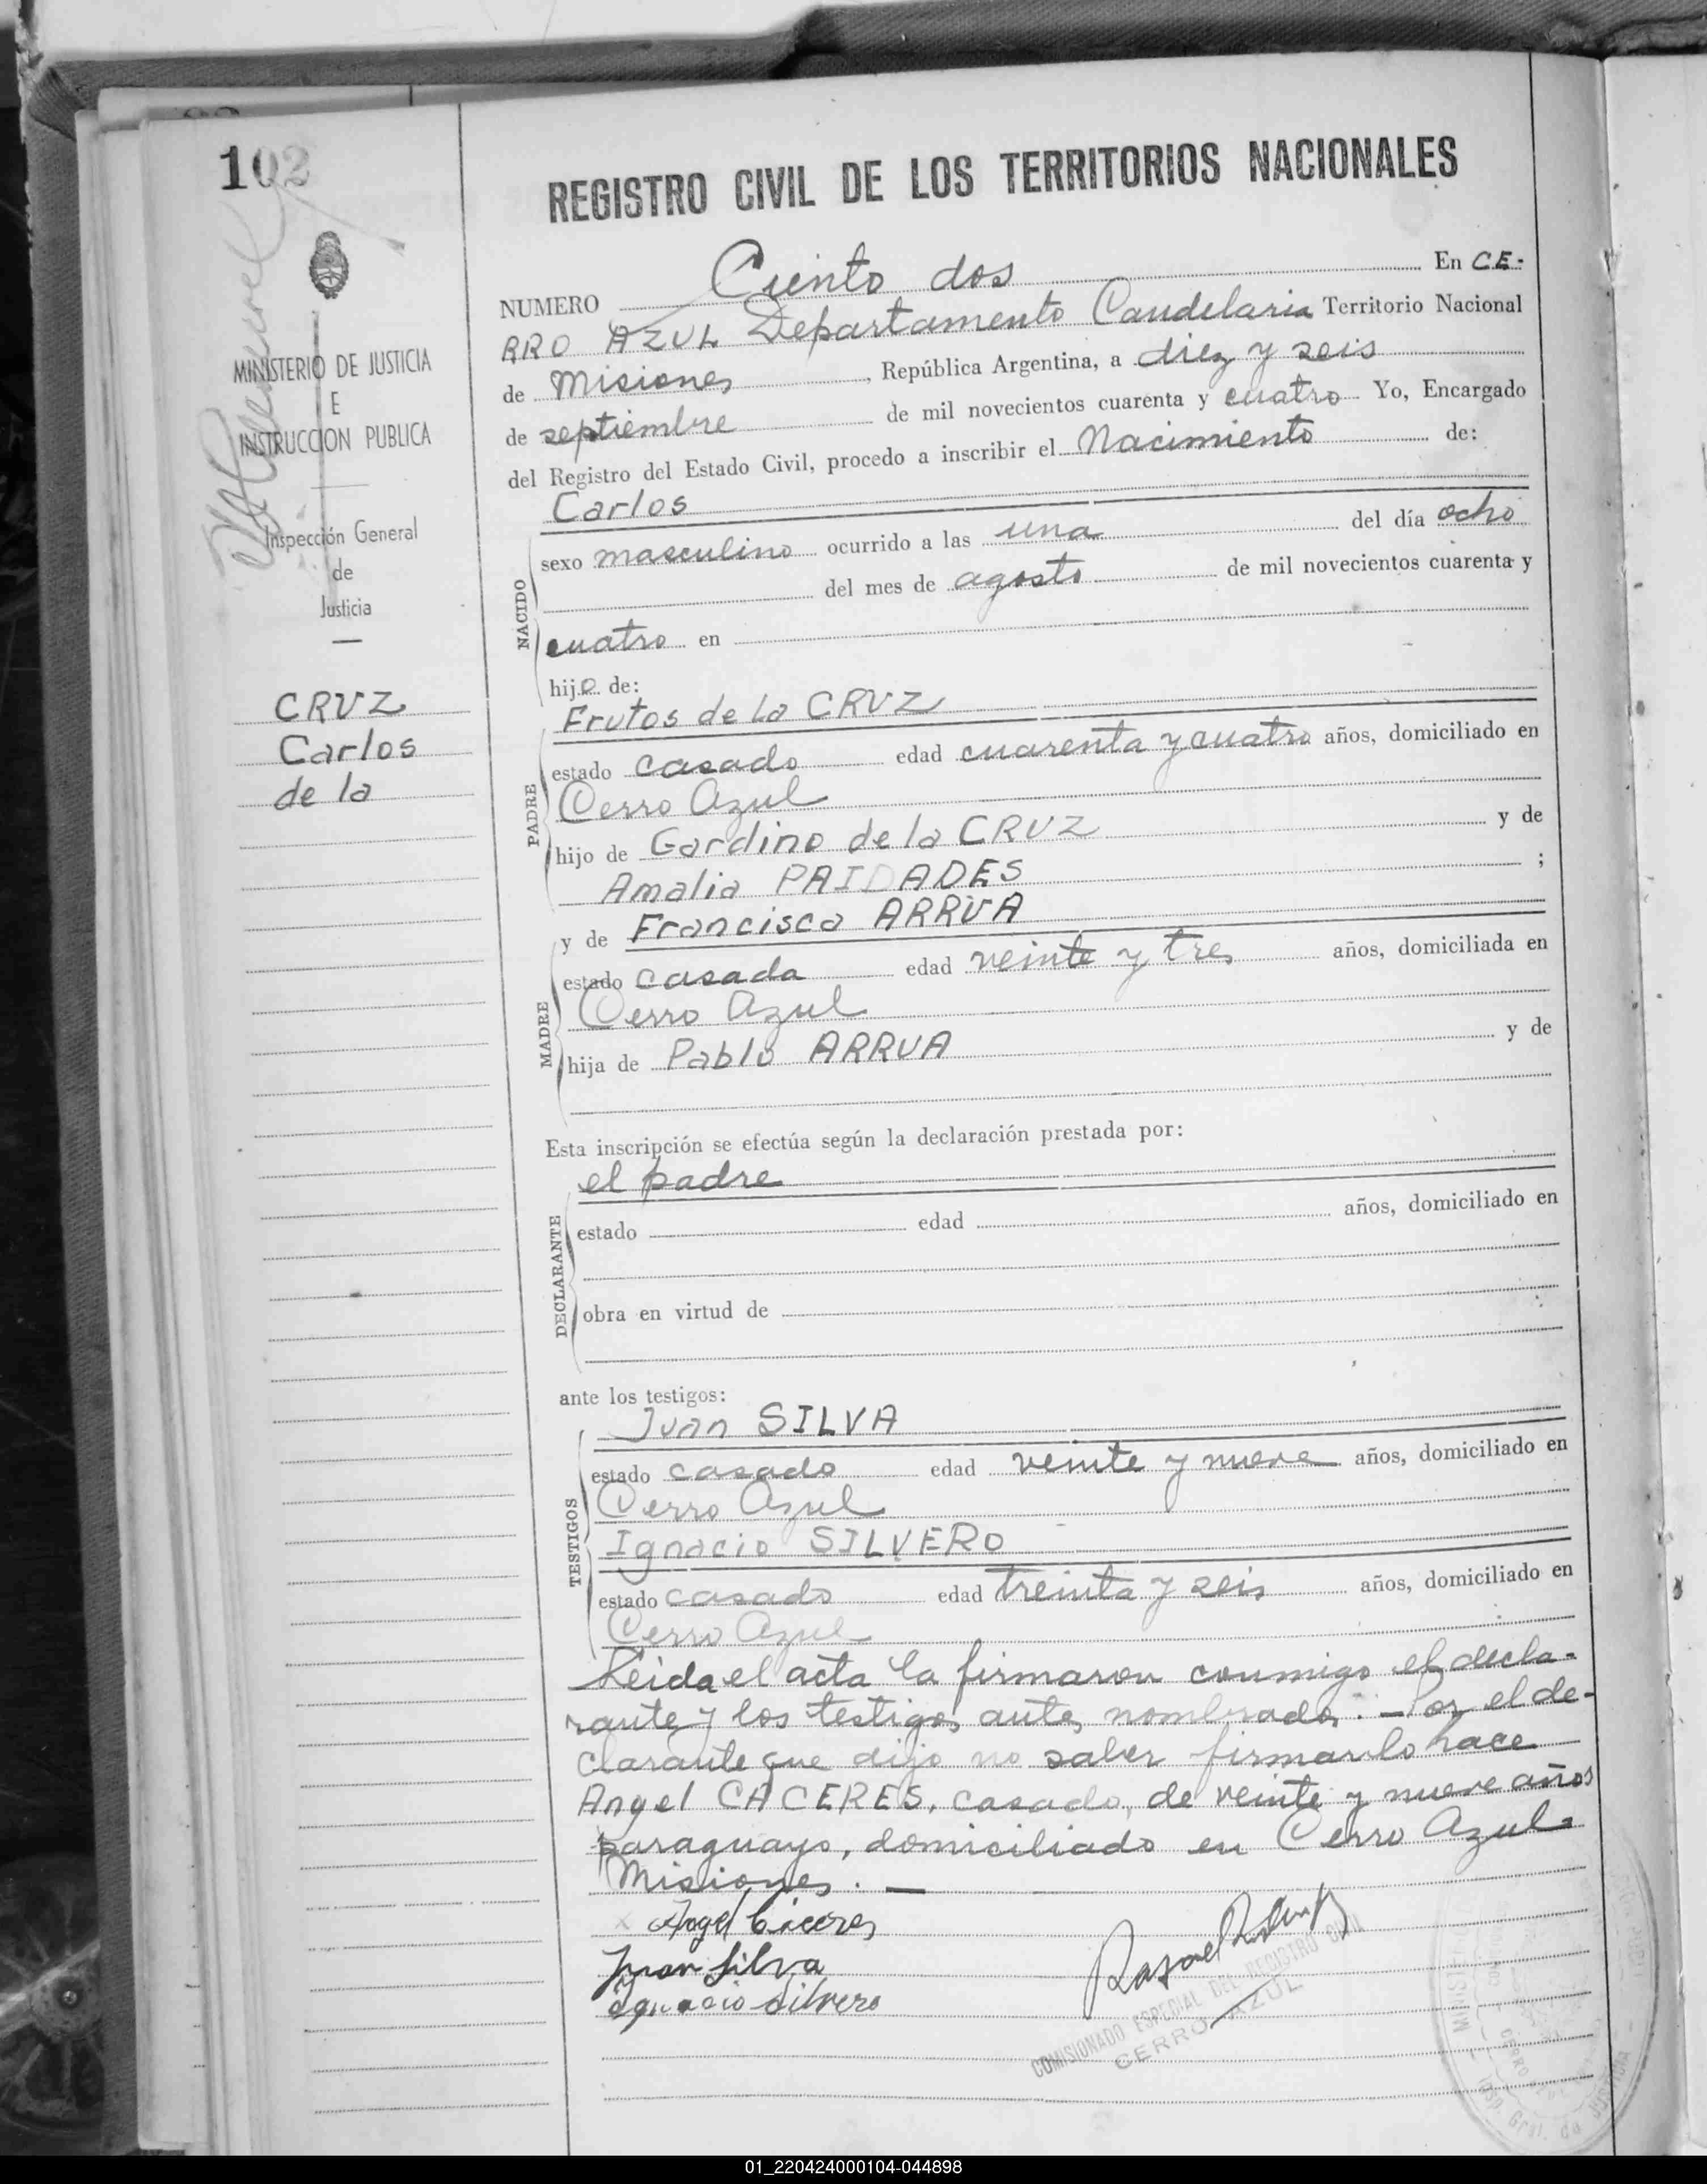 102
REGISTRO CIVIL DE LOS TERRITORIOS NACIONALES
MINISTERIO DE JUSTICIA
E
INSTRUCCION PUBLICA
Inspección General
de
Justicia
CRUZ
Carlos
de la
NUMERO Ciento dos En CE-
RRO AZUL Departamento Candelaria Territorio Nacional
de Misiones, República Argentina, a diez y seis
de septiembre de mil novecientos cuarenta y cuatro Yo, Encargado
del Registro del Estado Civil, procedo a inscribir el Nacimiento de:
Carlos
NACIDO
sexo masculino ocurrido a las una del día ocho
del mes de agosto de mil novecientos cuarenta y
cuatro en
hijo de:
Frutos de la CRUZ
PADRE
estado casado edad cuarenta y cuatro años, domiciliado en
Cerro Azul
hijo de Gardino de la CRUZ y de
Amalia PAI ADES ;
y de Francisca ARRUA
MADRE
estado casada edad veinte y tres años, domiciliada en
Cerro Azul
hija de Pablo ARRUA y de
Esta inscripción se efectúa según la declaración prestada por:
el padre
DECLARANTE
estado edad años, domiciliado en
obra en virtud de
ante los testigos:
Juan SILVA
TESTIGOS
estado casado edad veinte y nueve años, domiciliado en
Cerro Azul
Ignacio SILVERO
estado casado edad treinta y seis años, domiciliado en
Cerro Azul
Leida el acta la firmaron conmigo el decla-
rante y los testigos antes nombrados. - Por el de-
clarante que dijo no saber firmar lo hace
Angel CACERES, casado, de veinte y nueve años
paraguayo, domiciliado en Cerro Azul-
Misiones. -
Angel Cáceres
Juan Silva
Ignacio Silvero
Rafael
COMISIONADO ESPECIAL DEL REGISTRO CIVIL
CERRO AZUL
01_220424000104-044898